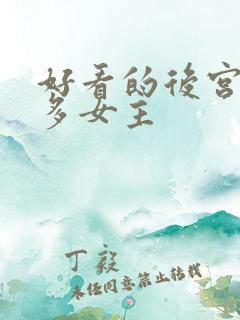 好看的後宮
多女主
丁毅
未经同意禁止转载